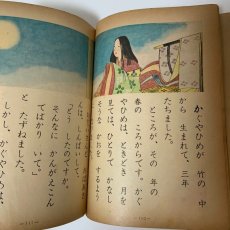 かぐやひめが 竹の 中
から 生まれて、三年
たちました。
ところが、その 年の
春の ころからです。かぐ
やひめは、ときどき 月を
見ては、ひとりで かなし
そうな かおを するよう
んは、しんぱいして、
「どう したのですか。
そんなに かんがえこん
でばかり いて。」
と たずねました。
しかし、かぐやひめは、